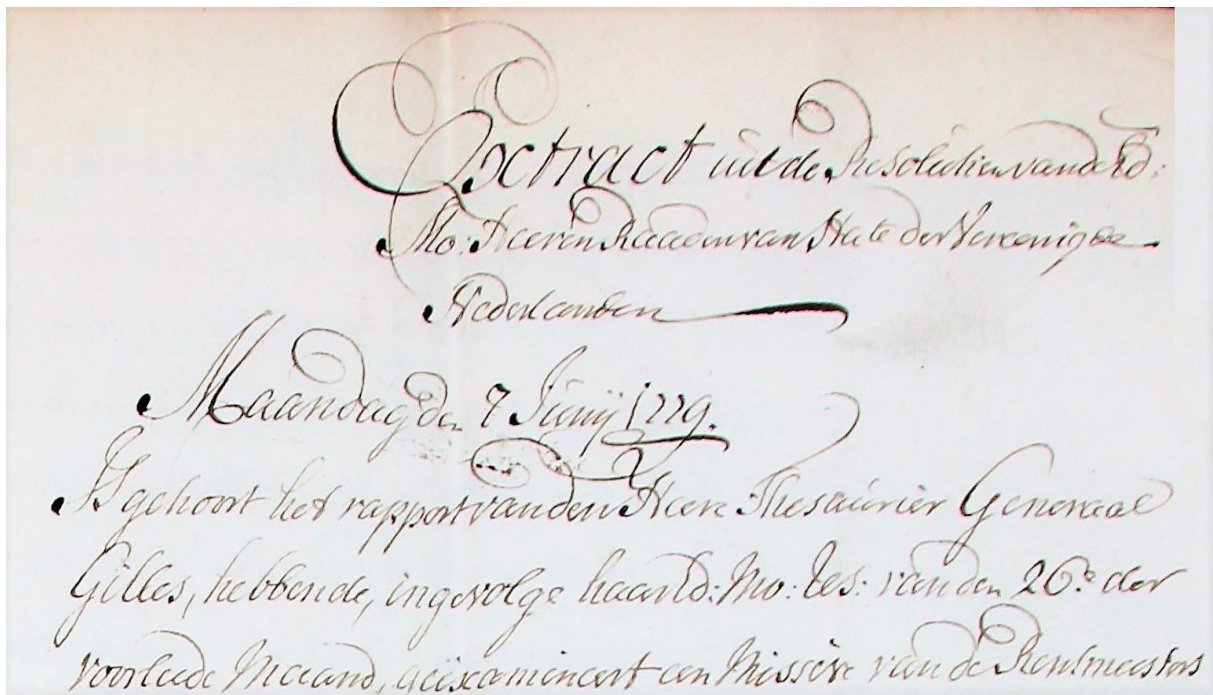 Extract uit de Resolutien van de Ed:
Mo: Heeren Raaden van State der Vereenigde
Nederlanden
Maandag den 7 Junij 1779.
Is gehoort het rapport van den Heere Thesaurier Generaal
Gilles, hebbende, ingevolge haar Ed: Mo: Res: van den 26e. der
voorleede Maand, geëxamineert een Missive van de Rentmeesters